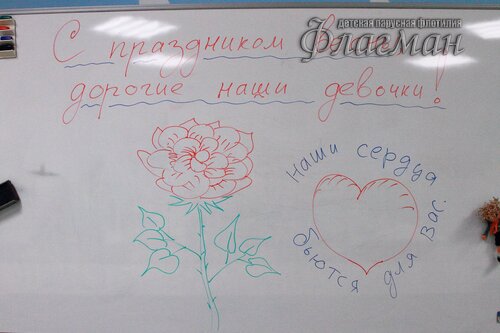 детская парусная флотилия
Флагман
С праздником
дорогие наши девочки!
наши сердца
бьются для вас.